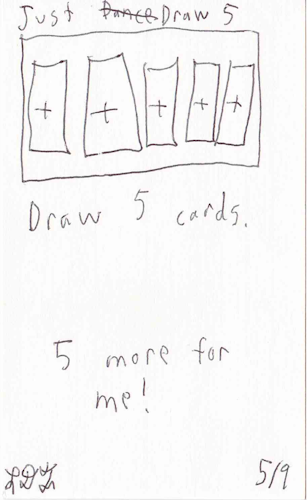 Just Dance Draw 5
+ + + + +
Draw 5 cards.
5 more for
me!
5/9